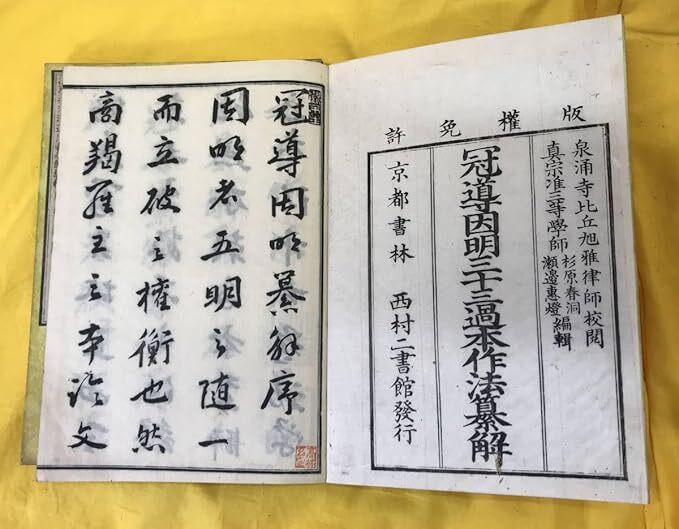 版權免許
泉涌寺比丘旭雅律師校閲
真宗准三等學師 杉原春洞
瀬邊惠燈 編輯
冠導因明三十三過本作法纂解
京都書林 西村二書館發行
冠導因明纂解序
因明者五明之随一
而立破之權衡也然
商羯羅主之本論文